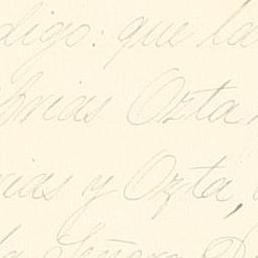 digo: que la
onias Ozta
nias y Ozta,
la Señora D